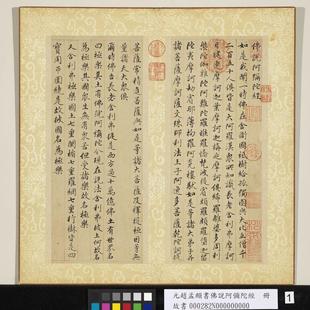 佛說阿彌陀經
如是我聞一時佛在舍衛國祇樹給孤獨園與大比丘僧千
二百五十人俱皆是大阿羅漢眾所知識長老舍利弗摩訶
目揵連摩訶迦葉摩訶迦旃延摩訶俱絺羅離婆多周利
槃陀伽難陀阿難陀羅睺羅憍梵波提賓頭盧頗羅墮迦留
陀夷摩訶劫賓那薄拘羅阿㝹樓馱如是等諸大弟子并
諸菩薩摩訶薩文殊師利法王子阿逸多菩薩乾陀訶提
菩薩常精進菩薩與如是等諸大菩薩及釋提桓因等無
量諸天大眾俱
爾時佛告長老舍利弗從是西方過十萬億佛土有世界名
曰極樂其土有佛號阿彌陀今現在說法舍利弗彼土何故名
為極樂其國眾生無有眾苦但受諸樂故名極樂
又舍利弗極樂國土七重欄楯七重羅網七重行樹皆是四
寶周帀圍繞是故彼國名為極樂
元趙孟頫書佛說阿彌陀經 冊
故書000282N000000000
1